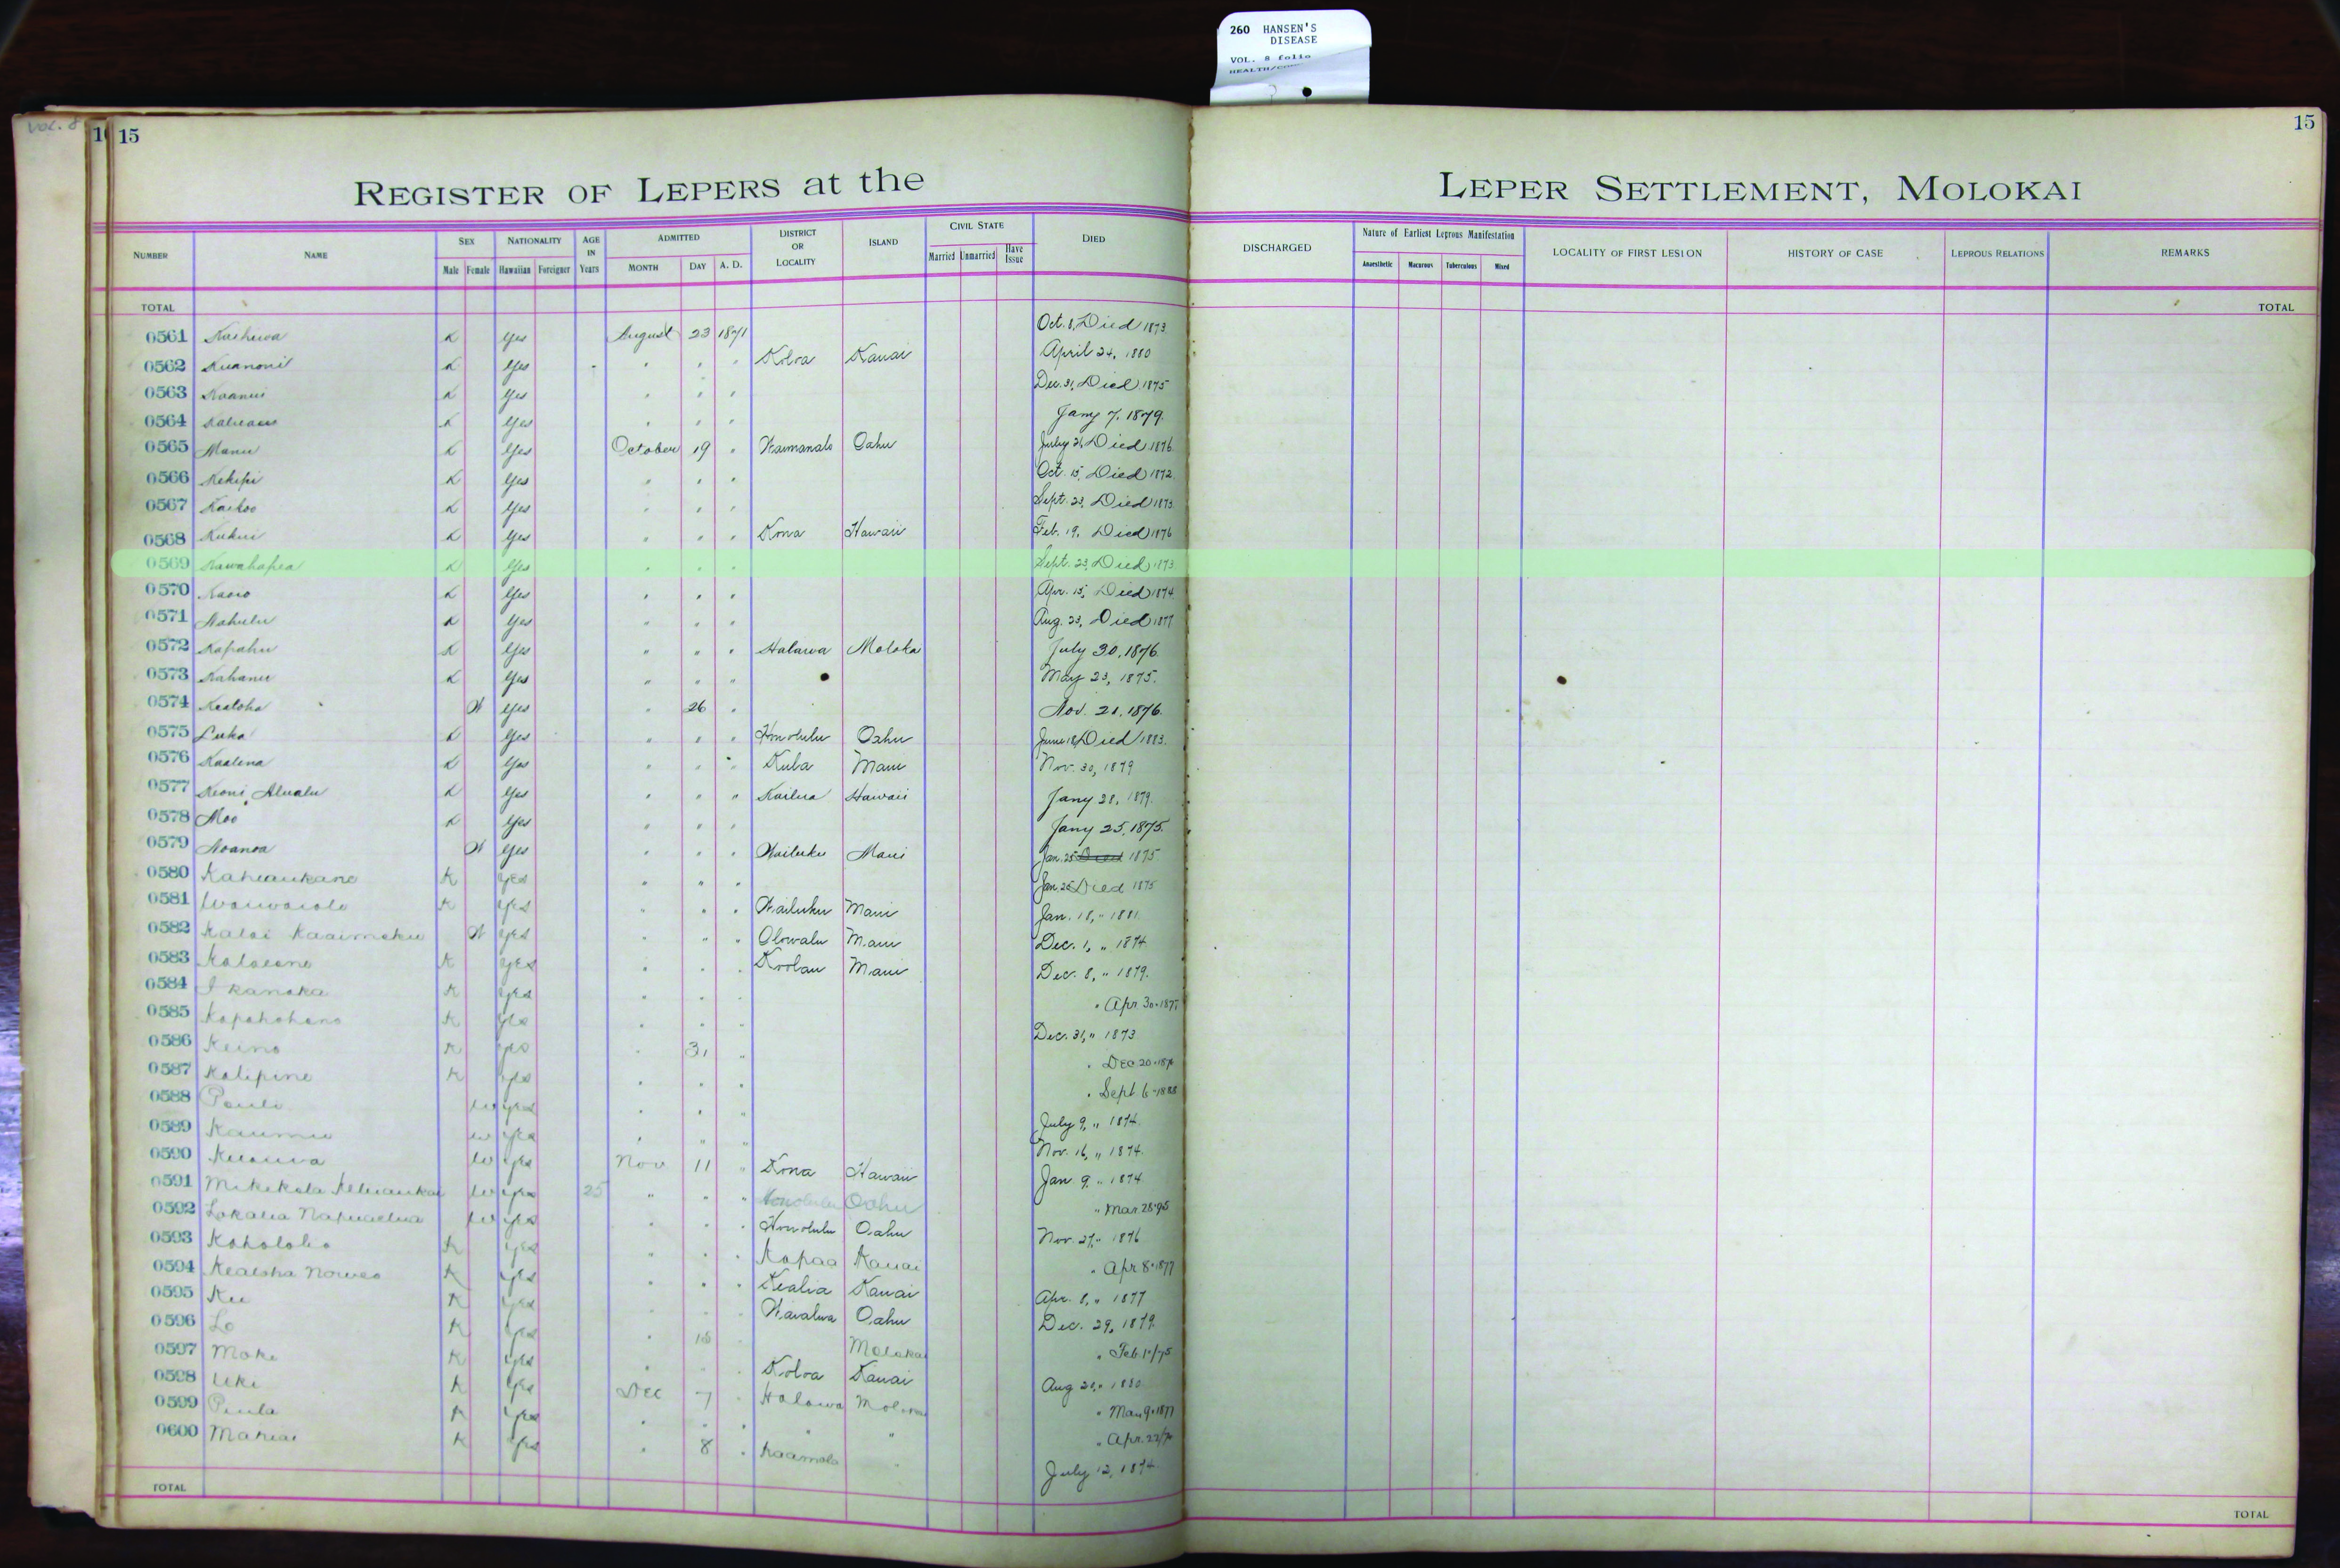 260 HANSEN'S
DISEASE
VOL. 8 folio
Vol. 8
15
15
REGISTER OF LEPERS at the LEPER SETTLEMENT, MOLOKAI
NUMBER NAME SEX Male Female NATIONALITY Hawaiian Foreigner AGE IN Years ADMITTED MONTH DAY A. D. DISTRICT OR LOCALITY ISLAND CIVIL STATE Married Unmarried Have Issue DIED DISCHARGED Nature of Earliest Leprous Manifestation Anaesthetic Macurous Tuberculous Mixed LOCALITY OF FIRST LESION HISTORY OF CASE LEPROUS RELATIONS REMARKS
TOTAL TOTAL
0561 K Yes August 23 1871 Oct. 8, Died 1873
0562 K Yes " " " Koloa Kauai April 24, 1880
0563 K Yes " " " Dec. 31, Died 1875
0564 K Yes " " " Jany 7, 1879.
0565 Manu K Yes October 19 " Waimanalo Oahu July 21, Died 1876
0566 Kekipi K Yes " " " Oct. 15, Died 1872
0567 Kaikoo K Yes " " " Sept. 23, Died 1873
0568 Kukui K Yes " " " Kona Hawaii Feb. 19, Died 1876
0569 Kawahapea K Yes " " " Sept. 23, Died 1873
0570 K Yes " " " Apr. 15, Died 1874
0571 Nahulu K Yes " " " Aug. 23, Died 1877
0572 Kapahu K Yes " " " Halawa Moloka July 30, 1876
0573 Kahanu K Yes " " " May 23, 1875.
0574 Kealoha W Yes " 26 " Nov. 21, 1876.
0575 Luka K Yes " " " Honolulu Oahu June 18, Died 1883.
0576 Kaalena K Yes " " " Kula Maui Nov. 30, 1879
0577 Keoni Alualu K Yes " " " Kailua Hawaii Jany 28, 1879.
0578 Moo K Yes " " " Jany 25, 1875.
0579 Noanoa W Yes " " " Wailuku Maui Jan. 25 Died 1875
0580 Kaheaukane K Yes " " " Jan. 25 Died 1875
0581 K Yes " " " Wailuku Maui Jan. 18, " 1881
0582 Kalai Kaaimoku W Yes " " " Olowalu Maui Dec. 1, " 1874
0583 K Yes " " " Koolau Maui Dec. 8, " 1879.
0584 I kanaka K Yes " " " " Apr 30-187
0585 Kapahohano K Yes " " " Dec. 31, " 1873
0586 Keino K Yes " 31 " " Dec 20-187
0587 Kalipine K Yes " " " " Sept 6-1888
0588 Pauli W Yes " " " July 9, " 1874.
0589 Kaumu W Yes " " " Nov. 16, " 1874.
0590 W Yes Nov 11 " Kona Hawaii Jan. 9, " 1874
0591 W Yes 25 " " " Honolulu Oahu " Mar. 28-95
0592 W Yes " " " Honolulu Oahu Nov. 27, " 1876
0593 Kaholoko K Yes " " " Kapaa Kauai " Apr 8-1877
0594 K Yes " " " Kealia Kauai Apr. 8, " 1877
0595 Ku K Yes " " " Waialua Oahu Dec. 29, 1879
0596 Lo K Yes " 18 " Molokai " Feb.
0597 Moke K Yes " " " Koloa Kauai Aug
0598 Uki K Yes Dec 7 " Halawa " Mar 9-1877
0599 Piula K Yes " " " " " " Apr. 22/
0600 Mahiai K Yes " 8 " Kaamola " July 12, 1874
TOTAL TOTAL